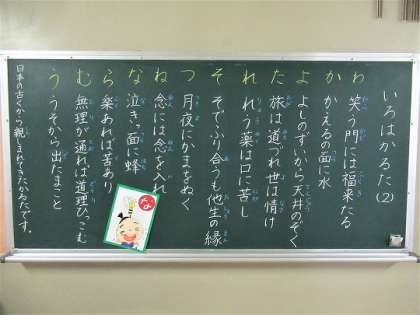 いろはかるた(2)
わ 笑う門には福来たる
か かえるの面に水
よ よしのずいから天井のぞく
た 旅は道づれ世は情け
れ れう薬は口に苦し
そ そでふり合うも他生の縁
つ 月夜にかまをぬく
ね 念には念を入れ
な 泣き面に蜂
ら 楽あれば苦あり
む 無理が通れば道理ひっこむ
う うそから出たまこと
日本の古くから親しまれてきたかるたです。
な